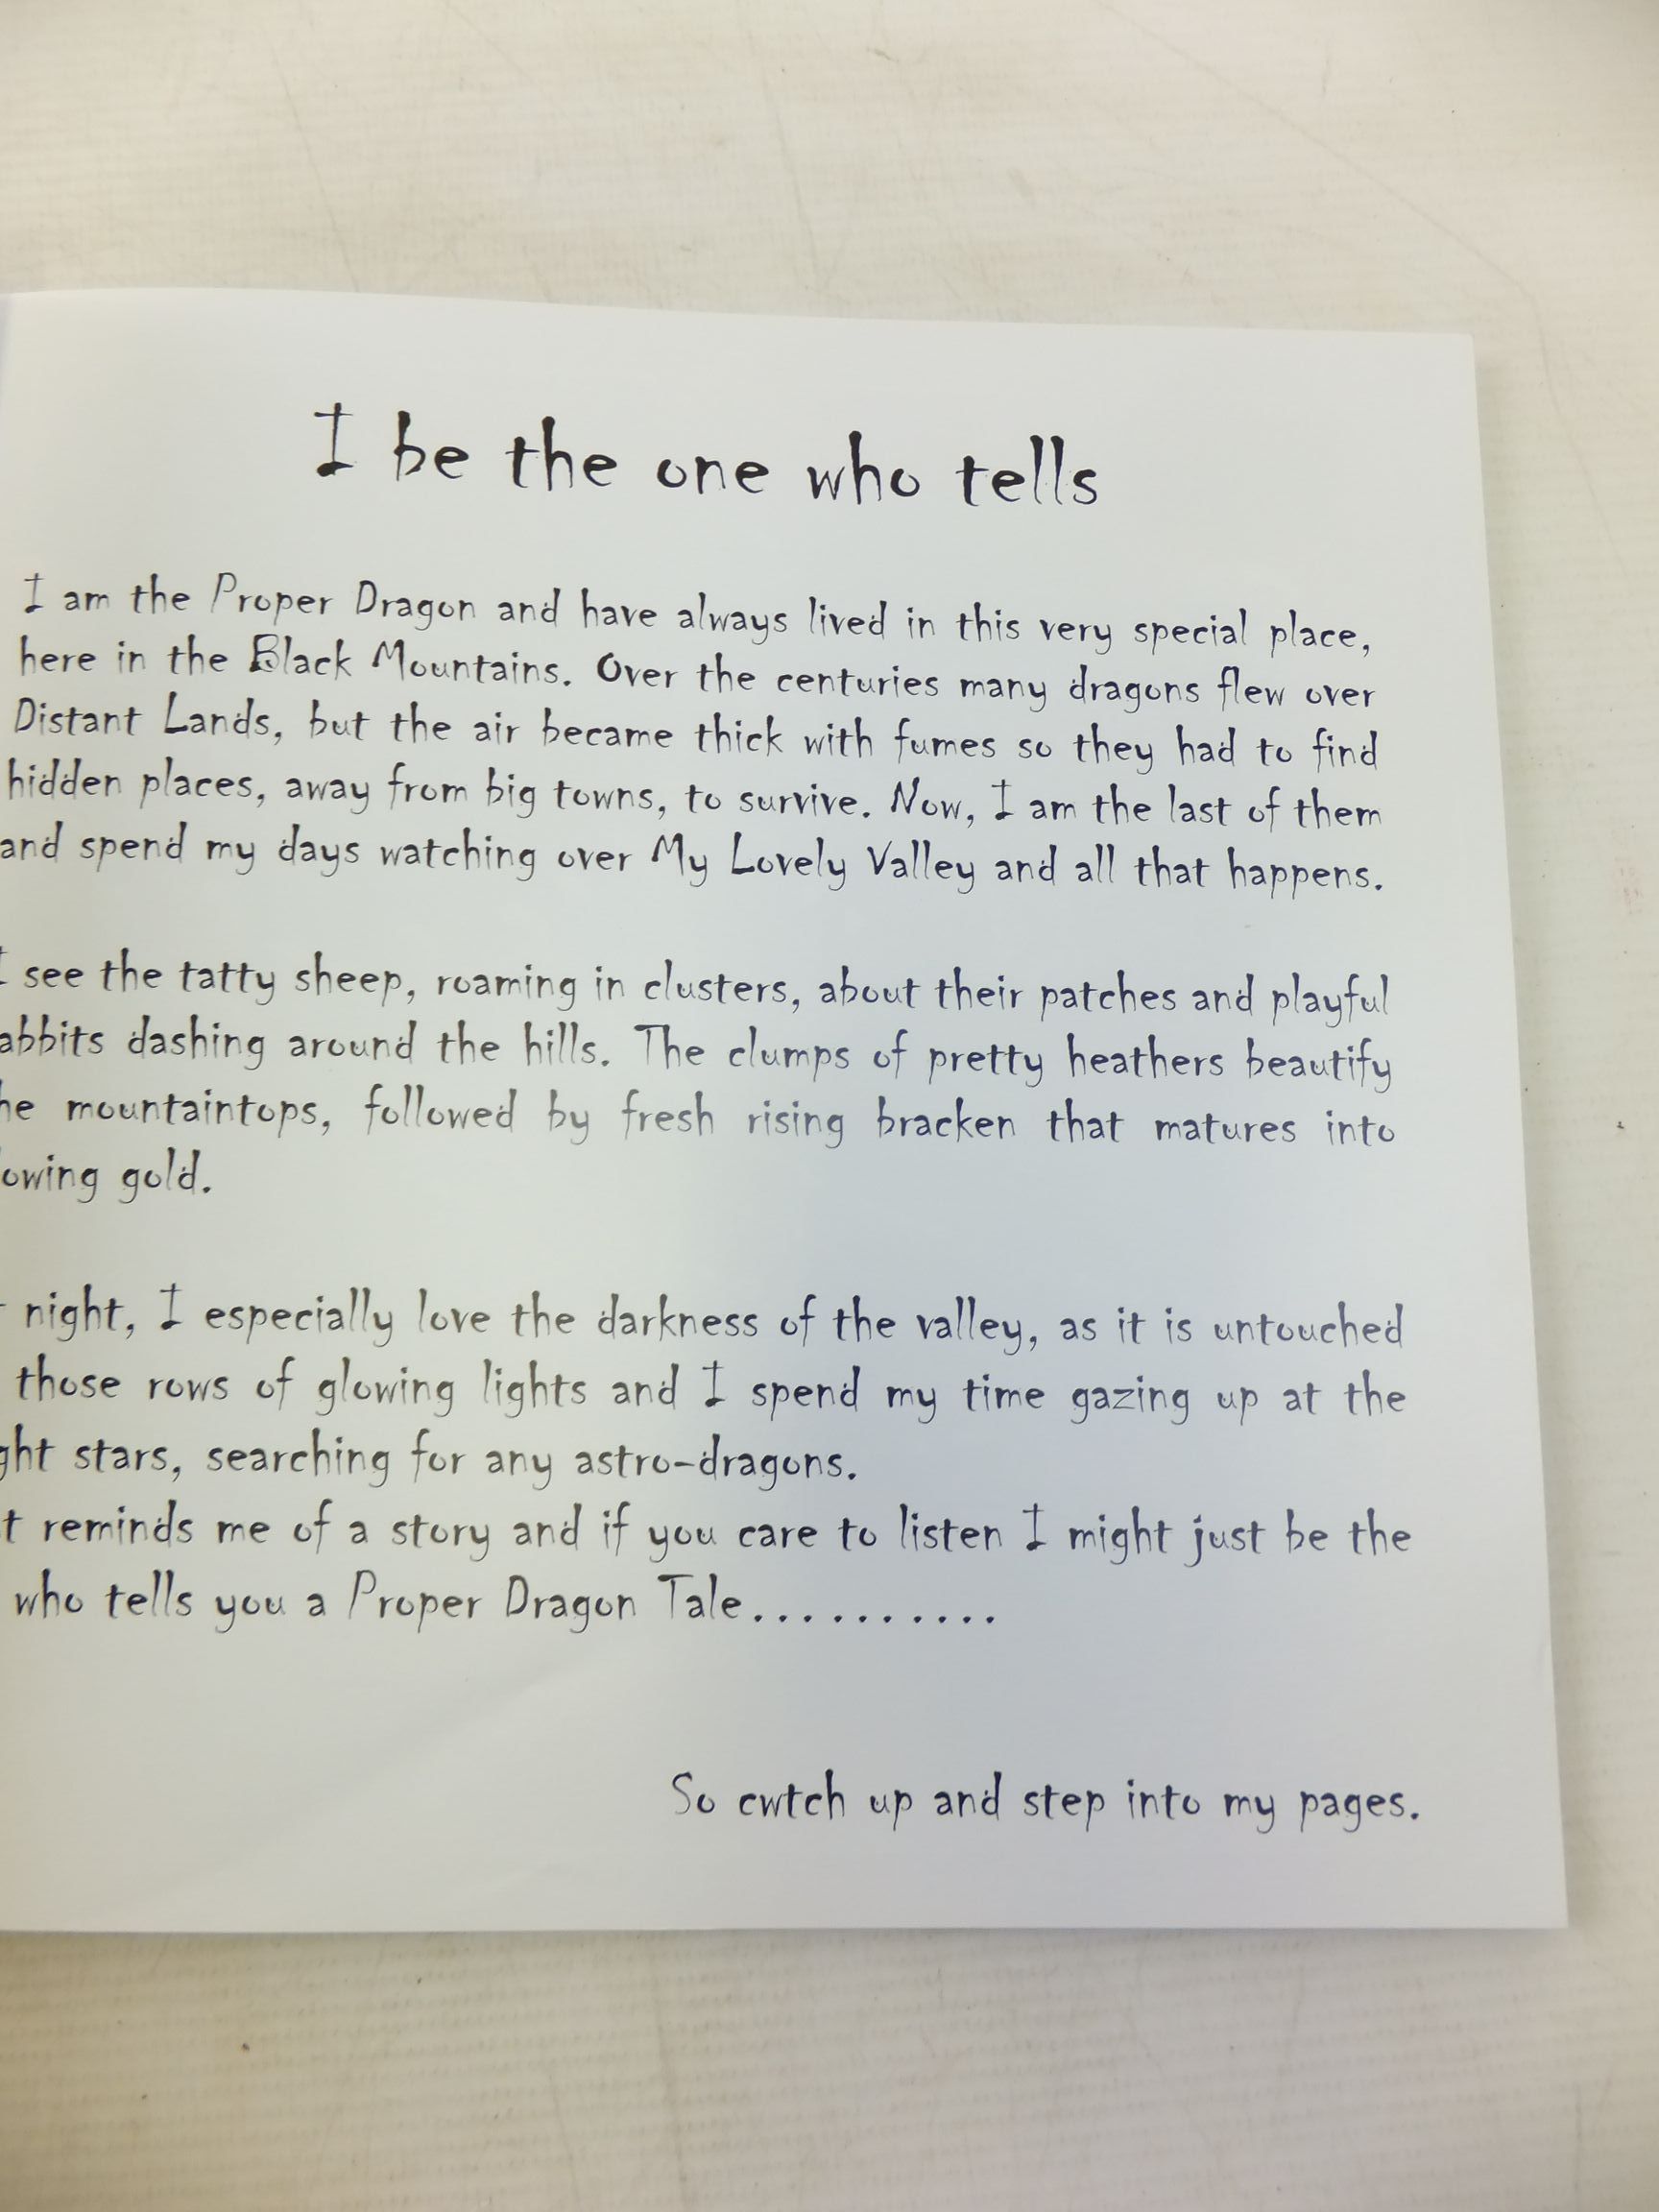 I be the one who tells
I am the Proper Dragon and have always lived in this very special place,
here in the Black Mountains. Over the centuries many dragons flew over
Distant Lands, but the air became thick with fumes so they had to find
hidden places, away from big towns, to survive. Now, I am the last of them
and spend my days watching over My Lovely Valley and all that happens.
I see the tatty sheep, roaming in clusters, about their patches and playful
abbits dashing around the hills. The clumps of pretty heathers beautify
he mountaintops, followed by fresh rising bracken that matures into
owing gold.
night, I especially love the darkness of the valley, as it is untouched
those rows of glowing lights and I spend my time gazing up at the
ght stars, searching for any astro-dragons.
t reminds me of a story and if you care to listen I might just be the
who tells you a Proper Dragon Tale..........
So cwtch up and step into my pages.